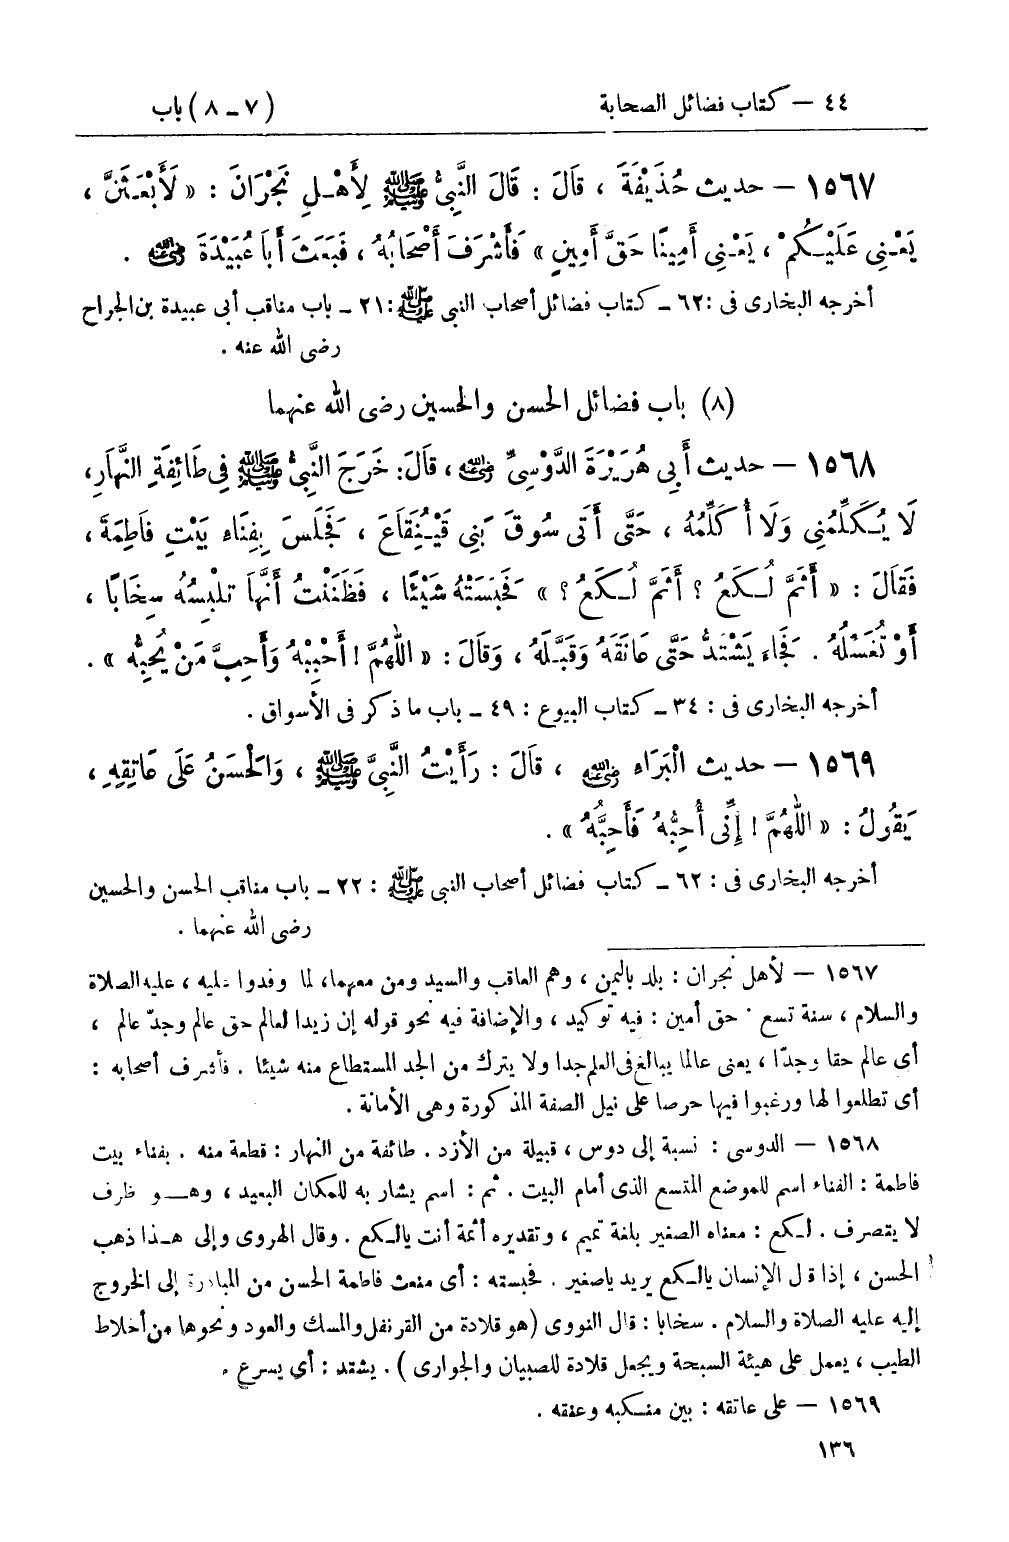 ٤٤ – كتاب فضائل الصحابة (٧ – ٨) باب
١٥٦٧ – حديث حُذَيْفَةَ ، قَالَ : قَالَ النَّبِيُّ ﷺ لِأَهْلِ نَجْرَانَ : « لَأَبْعَثَنَّ ،
يَعْنِى عَلَيْكُمْ ، يَعْنِى أَمِينًا حَقَّ أَمِينٍ » فَأَشْرَفَ أَصْحَابُهُ ، فَبَعَثَ أَبَا عُبَيْدَةَ رضي الله عنه .
أخرجه البخارى فى : ٦٢ – كتاب فضائل أصحاب النبى ﷺ : ٢١ – باب مناقب أبى عبيدة بن الجراح
رضى الله عنه .
(٨) باب فضائل الحسن والحسين رضى الله عنهما
١٥٦٨ – حديث أَبِي هُرَيْرَةَ الدَّوْسِيِّ رضي الله عنه ، قَالَ : خَرَجَ النَّبِيُّ ﷺ فِى طَائِفَةِ النَّهَارِ ،
لَا يُكَلِّمُنِى وَلَا أُكَلِّمُهُ ، حَتَّى أَتَى سُوقَ بَنِى قَيْنُقَاعَ ، فَجَلَسَ بِفِنَاءِ بَيْتِ فَاطِمَةَ ،
فَقَالَ : « أَثَمَّ لُكَعُ ؟ أَثَمَّ لُكَعُ ؟ » فَحَبَسَتْهُ شَيْئًا ، فَظَنَنْتُ أَنَّهَا تُلْبِسُهُ سِخَابًا ،
أَوْ تُغَسِّلُهُ . فَجَاءَ يَشْتَدُّ حَتَّى عَانَقَهُ وَقَبَّلَهُ ، وَقَالَ : « اللّٰهُمَّ ! أَحْبِبْهُ وَأَحِبَّ مَنْ يُحِبُّهُ » .
أخرجه البخارى فى : ٣٤ – كتاب البيوع : ٤٩ – باب ما ذكر فى الأسواق .
١٥٦٩ – حديث الْبَرَاءِ رضي الله عنه ، قَالَ : رَأَيْتُ النَّبِيَّ ﷺ ، وَالْحَسَنُ عَلَى عَاتِقِهِ ،
يَقُولُ : « اللّٰهُمَّ ! إِنِّى أُحِبُّهُ فَأَحِبَّهُ » .
أخرجه البخارى فى : ٦٢ – كتاب فضائل أصحاب النبى ﷺ : ٢٢ – باب مناقب الحسن والحسين
رضى الله عنهما .
١٥٦٧ – لأهل نجران : بلد باليمن ، وهم العاقب والسيد ومن معهما، لما وفدوا عليه ، عليه الصلاة
والسلام ، سنة تسع . حق أمين : فيه توكيد ، والإضافة فيه نحو قوله إن زيدا لعالم حق عالم وجدّ عالم ،
أى عالم حقا وجدّا ، يعنى عالما يبالغ فى العلم جدا ولا يترك من الجد المستطاع منه شيئا . فأشرف أصحابه :
أى تطلعوا لها ورغبوا فيها حرصا على نيل الصفة المذكورة وهى الأمانة .
١٥٦٨ – الدوسى : نسبة إلى دوس ، قبيلة من الأزد . طائفة من النهار : قطعة منه . بفناء بيت
فاطمة : الفناء اسم للموضع المتسع الذى أمام البيت . ثم : اسم يشار به للمكان البعيد ، وهو ظرف
لا يتصرف . لكع : معناه الصغير بلغة تميم ، وتقديره أثمة أنت يالكع . وقال الهروى وإلى هذا ذهب
الحسن ، إذا قال الإنسان يالكع يريد ياصغير . فحبسته : أى منعت فاطمة الحسن من المبادرة إلى الخروج
إليه عليه الصلاة والسلام . سخابا : قال النووى (هو قلادة من القرنفل والمسك والعود ونحوها من أخلاط
الطيب ، يعمل على هيئة السبحة ويجعل قلادة للصبيان والجوارى ) . يشتد : أى يسرع .
١٥٦٩ – على عاتقه : بين منكبه وعنقه .
١٣٦